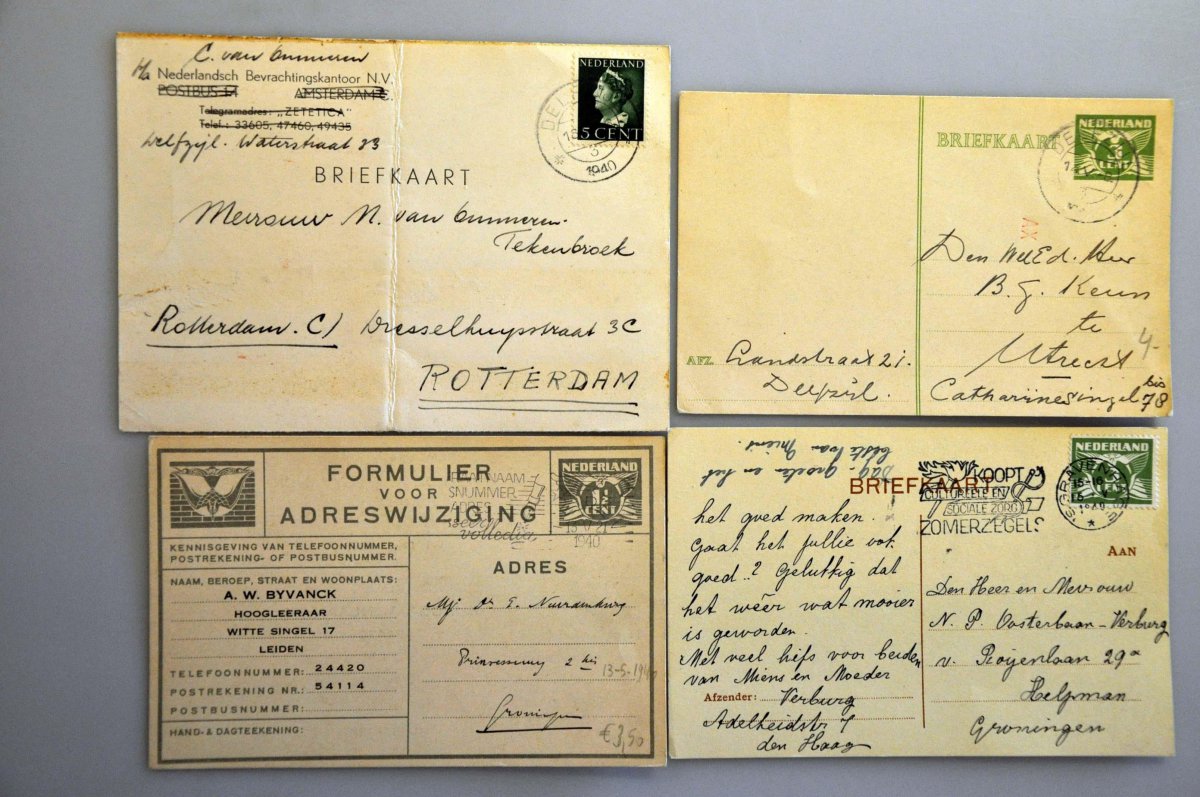 C. van Ommeren
p/a Nederlandsch Bevrachtingskantoor N.V.
POSTBUS AMSTERDAM C.
Telegramadres: „ZETETICA”
Telef.: 33605, 47460, 49435
Delfzijl. Waterstraat 23
NEDERLAND
5 CENT
1940
BRIEFKAART
Mevrouw N. van Ommeren-
Tekenbroek
Rotterdam. C) Dresselhuysstraat 3C
ROTTERDAM
BRIEFKAART
NEDERLAND
CENT
XV
Den WelEd. Heer
B. J. Keun
te
Utrecht
4-
Catharijnesingel 78 bis
AFZ. Landstraat 21.
Delfzijl.
FORMULIER
VOOR
ADRESWIJZIGING
NEDERLAND
CENT
1940
volledig
KENNISGEVING VAN TELEFOONNUMMER,
POSTREKENING- OF POSTBUSNUMMER.
NAAM, BEROEP, STRAAT EN WOONPLAATS:
A. W. BYVANCK
HOOGLEERAAR
WITTE SINGEL 17
LEIDEN
TELEFOONNUMMER: 24420
POSTREKENING NR.: 54114
POSTBUSNUMMER:
HAND- & DAGTEEKENING:
ADRES
Mej. Dr. E. Neurdenburg
Prinsesseweg 2 bis
13-5-1940
Groningen
€3,50
dag. Groeten en het
beste van Miens.
BRIEFKAART
KOOPT
CULTUREELE EN
SOCIALE ZORG
ZOMERZEGELS
'S-GRAVENHAGE
NEDERLAND
het goed maken.
Gaat het jullie ook
goed..? Gelukkig dat
het wéér wat mooier
is geworden.
Met veel liefs voor beiden
van Miens en Moeder
Afzender: Verburg
Adelheidstr 7
den Haag
AAN
Den Heer en Mevrouw
N. P. Oosterbaan-Verburg
v. Royenlaan 29a
Helpman
Groningen